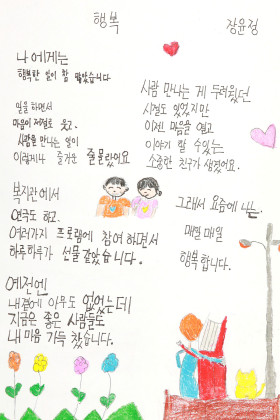 행복
장윤정
나에게는
행복한 일이 참 많았습니다
일을 하면서
마음이 저절로 웃고
사람을 만나는 일이
이렇게나 즐거운 줄 몰랐어요
복지관에서
연극도 하고
여러가지 프로그램에 참여하면서
하루하루가 선물 같았습니다.
예전엔
내 곁에 아무도 없었는데
지금은 좋은 사람들로
내 마음 가득 찼습니다.
사람 만나는 게 두려웠던
시절도 있었지만
이젠 마음을 열고
이야기 할 수 있는
소중한 친구가 생겼어요.
그래서 요즘에 나는
매일 매일
행복합니다.